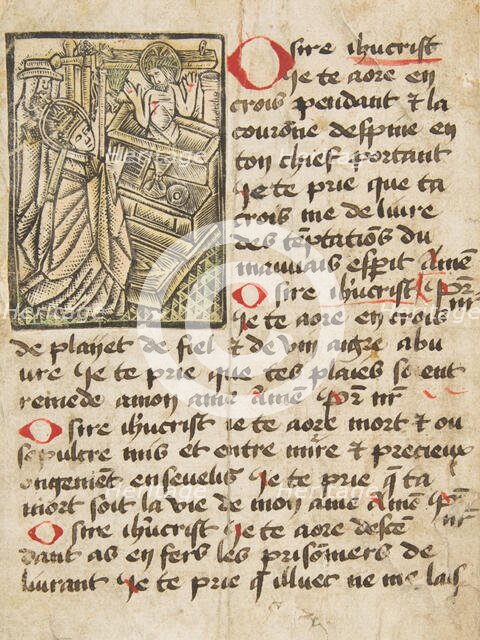 O sire ihūcrist
Je te aore en
crois pendant et la
couronne despine en
ton chief portant
Je te prie que ta
crois me de livre
des tēptatiōs du
mauuais esperit Amē
O sire ihūcrist pr̄ nr̄
Je te aore en crois
de plaiet de fiel et de vin aigre abu
ure Je te prie que tes plaies soient
remede a mon ame amē pr̄ nr̄
O sire ihūcrist Je te aore mort et ou
sepulcre mis et entre mire et precieux
ongement enseuelis Je te prie q̄ ta
mort soit la vie de mon ame Amen pr̄ nr̄
O sire ihūcrist Je te aore descē
dant as enfers les prisonniers de
liurant Je te prie q̄ illuec ne me lais
Heritage